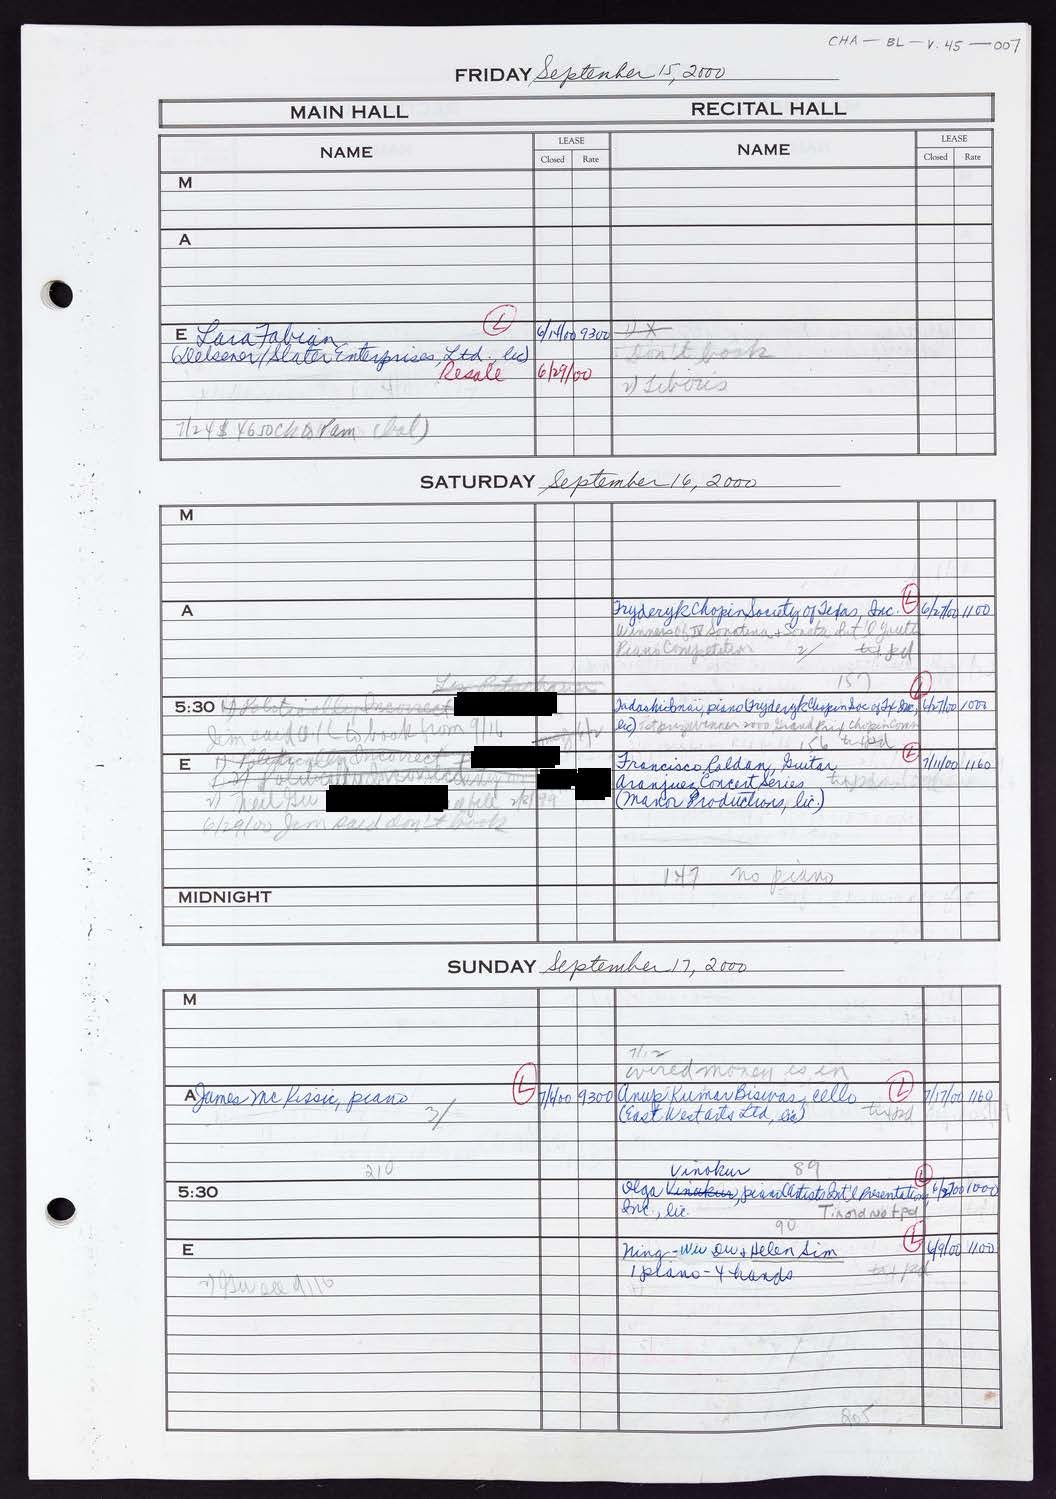 CHA — BL — V. 45 — 007
FRIDAY September 15, 2000
MAIN HALL RECITAL HALL
NAME LEASE Closed Rate NAME LEASE Closed Rate
M
A
E Lara Fabian L 6/14/00 9300
(Delsener/Slater Enterprises, Ltd., lic) Don't book
Resale 6/29/00 2)
7/24 $ 4650 ck to Pam (bal)
SATURDAY September 16, 2000
M
A Fryderyk Chopin Society of Texas, Inc. L 6/27/00 1100
Winners of IV Sonatina & Sonata Int'l Youth
Piano Competition 2/ pd
157
5:30 1) Politically Incorrect Tadashi Imai, piano (Fryderyk Chopin Soc of Tx, Inc., L 6/27/00 1000
Jim said O.K. to book from 9/16 lic) 1st prize winner 2000 Grand Prix Chopin Comp
156 pd
E 1) Politically Incorrect Francisco Roldan, Guitar L 7/11/00 1160
Aranjuez Concert Series
2) Neil file 2/2/99 (Manor Productions, lic.)
6/29/00 Jim said don't book
147 no piano
MIDNIGHT
SUNDAY September 17, 2000
M
7/12
wired money is in
A James McKissic, piano L 7/4/00 9300 Anup Kumar Biswas, cello L 7/17/00 1160
3/ (East West arts Ltd, lic) pd
210 Vinokur 89
5:30 Olga Vinakur, piano (Artists Int'l Presentations, L 1000
Inc., lic.
90
E Ning-Wu Du & Helen Sim L 6/9/00 1100
1 piano - 4 hands pd
205